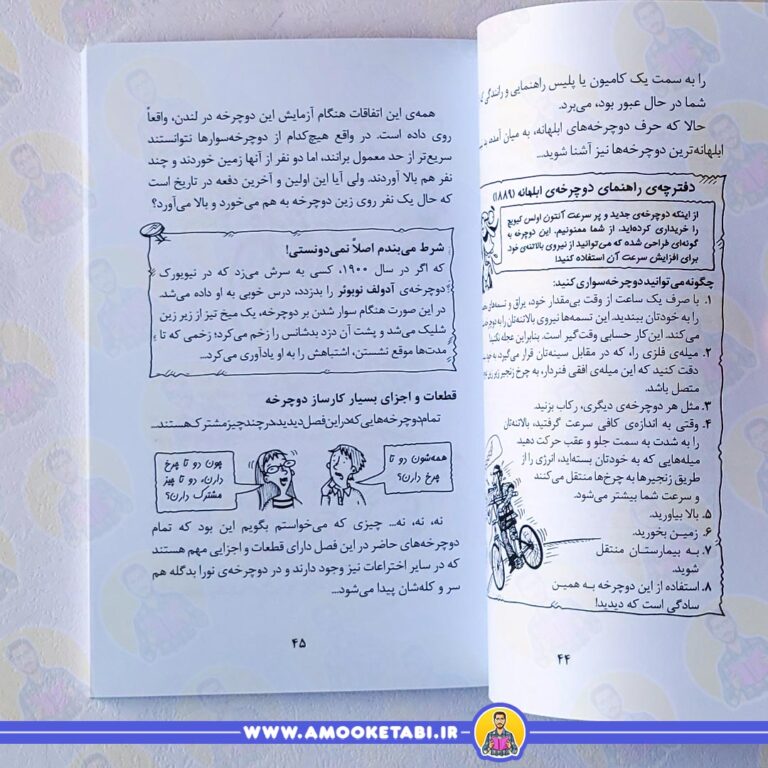 را به سمت یک کامیون یا پلیس راهنمایی و رانندگی که
شما در حال عبور بود، می‌برد.
حالا که حرف دوچرخه‌های ابلهانه، به میان آمده،
ابلهانه‌ترین دوچرخه‌ها نیز آشنا شوید...
دفترچه‌ی راهنمای دوچرخه‌ی ابلهانه (۱۸۸۹)
از اینکه دوچرخه‌ی جدید و پر سرعت آنتون اولس کیویچ
را خریداری کرده‌اید، از شما ممنونیم. این دوچرخه به
گونه‌ای طراحی شده که می‌توانید از نیروی بالاتنه‌ی خود
برای افزایش سرعت آن استفاده کنید!
چگونه می‌توانید دوچرخه‌سواری کنید:
۱. با صرف یک ساعت از وقت بی‌مقدار خود، یراق و تسمه‌های
را به خودتان ببندید. این تسمه‌ها نیروی بالاتنه‌تان را به
می‌کند. این کار حسابی وقت‌گیر است. بنابراین عجله نکنید!
۲. میله‌ی فلزی را، که در مقابل سینه‌تان قرار می‌گیرد،
دقت کنید که این میله‌ی افقی فنردار، به چرخ زنجیر زیر
متصل باشد.
۳. مثل هر دوچرخه‌ی دیگری، رکاب بزنید.
۴. وقتی به اندازه‌ی کافی سرعت گرفتید، بالاتنه‌تان
را به شدت به سمت جلو و عقب حرکت دهید
میله‌هایی که به خودتان بسته‌اید، انرژی را از
طریق زنجیرها به چرخ‌ها منتقل می‌کنند
و سرعت شما بیشتر می‌شود.
۵. بالا بیاورید.
۶. زمین بخورید.
۷. به بیمارستان منتقل
شوید.
۸. استفاده از این دوچرخه به همین
سادگی است که دیدید!
۴۴
همه‌ی این اتفاقات هنگام آزمایش این دوچرخه در لندن، واقعاً
روی داده است. در واقع هیچ‌کدام از دوچرخه‌سوارها نتوانستند
سریع‌تر از حد معمول برانند، اما دو نفر از آنها زمین خوردند و چند
نفر هم بالا آوردند. ولی آیا این اولین و آخرین دفعه در تاریخ است
که حال یک نفر روی زین دوچرخه به هم می‌خورد و بالا می‌آورد؟
شرط می‌بندم اصلاً نمی‌دونستی!
که اگر در سال ۱۹۰۰، کسی به سرش می‌زد که در نیویورک
دوچرخه‌ی آدولف نوبوئر را بدزدد، درس خوبی به او داده می‌شد.
در این صورت هنگام سوار شدن بر دوچرخه، یک میخ تیز از زیر زین
شلیک می‌شد و پشت آن دزد بدشانس را زخم می‌کرد؛ زخمی که تا
مدت‌ها موقع نشستن، اشتباهش را به او یادآوری می‌کرد...
قطعات و اجزای بسیار کارساز دوچرخه
تمام دوچرخه‌هایی که در این فصل دیدید، در چند چیز مشترک هستند...
همه‌شون دو تا
چرخ دارن؟
چون دو تا چرخ
دارن، دو تا چیز
مشترک دارن؟
نه، نه، نه... چیزی که می‌خواستم بگویم این بود که تمام
دوچرخه‌های حاضر در این فصل دارای قطعات و اجزایی مهم هستند
که در سایر اختراعات نیز وجود دارند و در دوچرخه‌ی نورا بدگله هم
سر و کله‌شان پیدا می‌شود...
۴۵
WWW.AMOOKETABI.IR